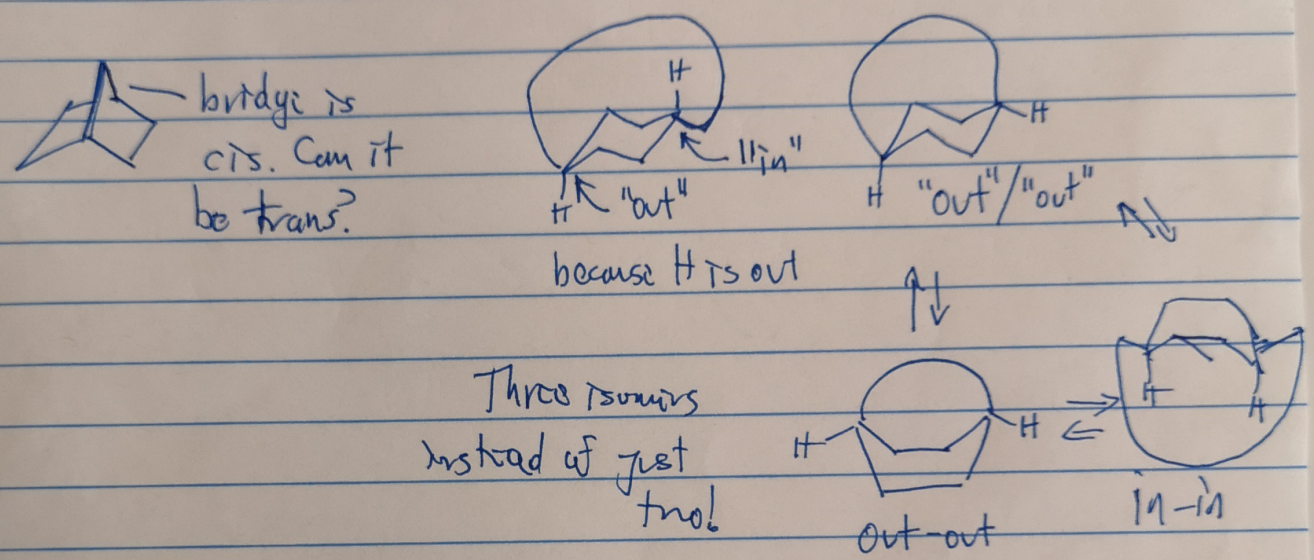 bridge is
cis. Can it
be trans?
H
"in"
H
"out"
because H is out
H
H
"out"/"out"
Three isomers
instead of just
two!
H
H
out-out
H
H
in-in